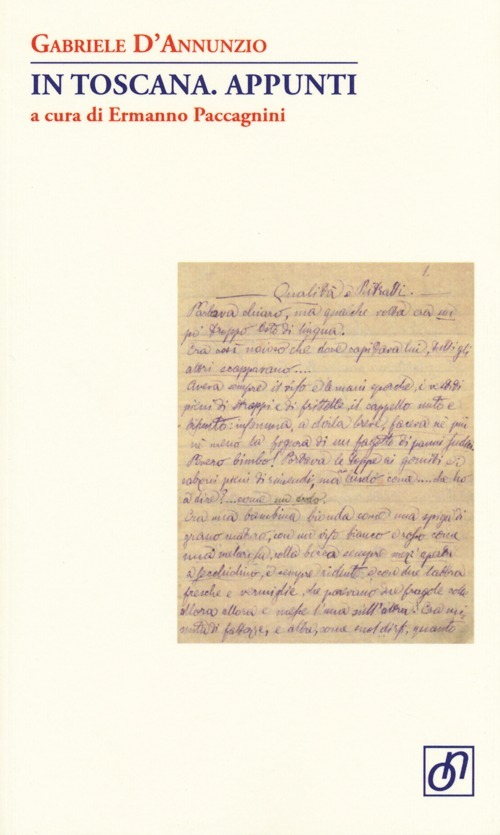 GABRIELE D'ANNUNZIO
IN TOSCANA. APPUNTI
a cura di Ermanno Paccagnini
1.
Qualità e Ritratti.
Parlava chiaro, ma qualche volta era un
po' troppo lesto di lingua.
Era così noioso che dove capitava lui, tutti gli
altri scappavano....
Aveva sempre il viso e le mani sporche, i vestiti
pieni di strappi e di frittelle, il cappello unto e
insomma, a dirla breve, faceva nè più
nè meno la figura di un fagotto di panni sudici.
Povero bimbo! Portava le toppe ai gomiti e i
calzoni pieni di rimendi, ma lindo come.... che ho
a dire?.... come uno
Era una bambina bionda come una spiga di
grano maturo, con un viso bianco e rosso come
una melarosa, colla bocca sempre mezz'aperta
a secchiolino, e sempre ridente, e con due labbra
fresche e vermiglie, che parevano due fragole colte
allora allora e messe l'una sull'altra. Era
di fattezze, e alta, come suol dirsi, quanto